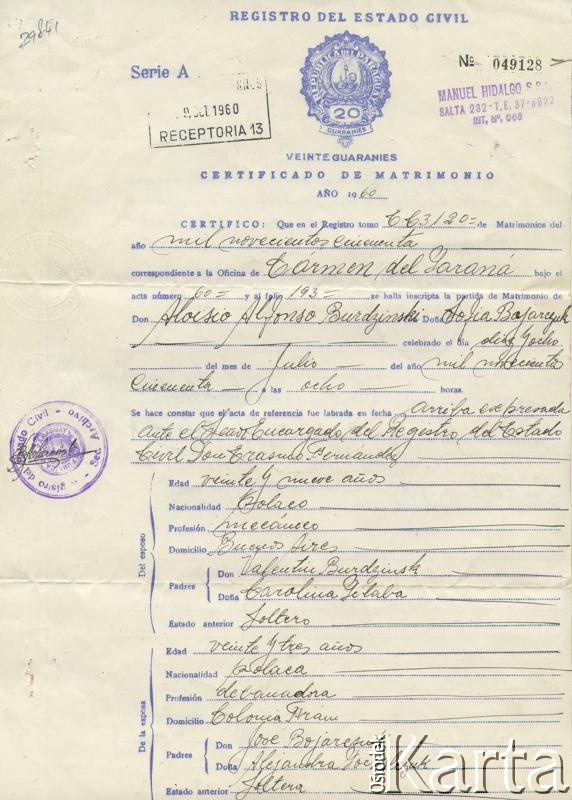 29841
REGISTRO DEL ESTADO CIVIL
Serie A
REPUBLICA DEL PARAGUAY
20
GUARANIES
No 049128
OCT. 1960
RECEPTORIA 13
MANUEL HIDALGO S.R.L.
SALTA 232 - T.E. 37-6822
INT, Nº. 060
VEINTE GUARANIES
CERTIFICADO DE MATRIMONIO
AÑO 1960
CERTIFICO: Que en el Registro tomo de Matrimonios del
año mil novecientos cincuenta
correspondiente a la Oficina de Cármen del Paraná bajo el
acta número 60= y al folio 193= se halla inscripta la partida de Matrimonio de
Don Aloisio Alfonso Burdzinski Doña Sofia Bojarczuk
celebrado el día diez y ocho
del mes de Julio del año mil novecientos
cincuenta a las ocho horas.
Se hace constar que el acta de referencia fue labrada en fecha arriba expresada
ante el Señor Encargado del Registro del Estado
Civil Don Erasmo Fernandez
Estado Civil - Sec. Archivo
Del esposo
Edad veinte y nueve años
Nacionalidad Polaco
Profesión mecánico
Domicilio Buenos Aires
Padres
Don Valentin Burdzinski
Doña Carolina
Estado anterior Soltero
De la esposa
Edad veinte y tres años
Nacionalidad Polaca
Profesión devanadora
Domicilio Colonia Fram
Padres
Don José
Doña Alejandra
Estado anterior Soltera
Ośrodek
Karta